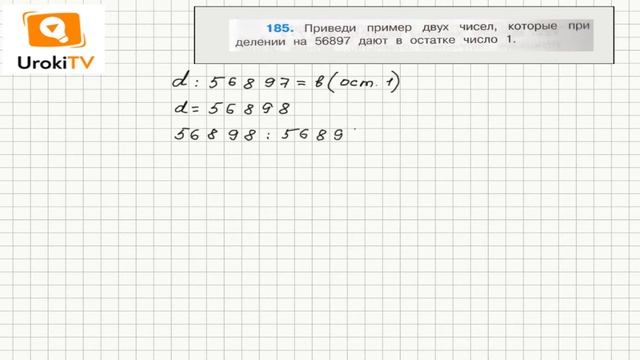 UrokiTV
185. Приведи пример двух чисел, которые при
делении на 56897 дают в остатке число 1.
d : 56897 = в (ост. 1)
d = 56898
56898 : 5689